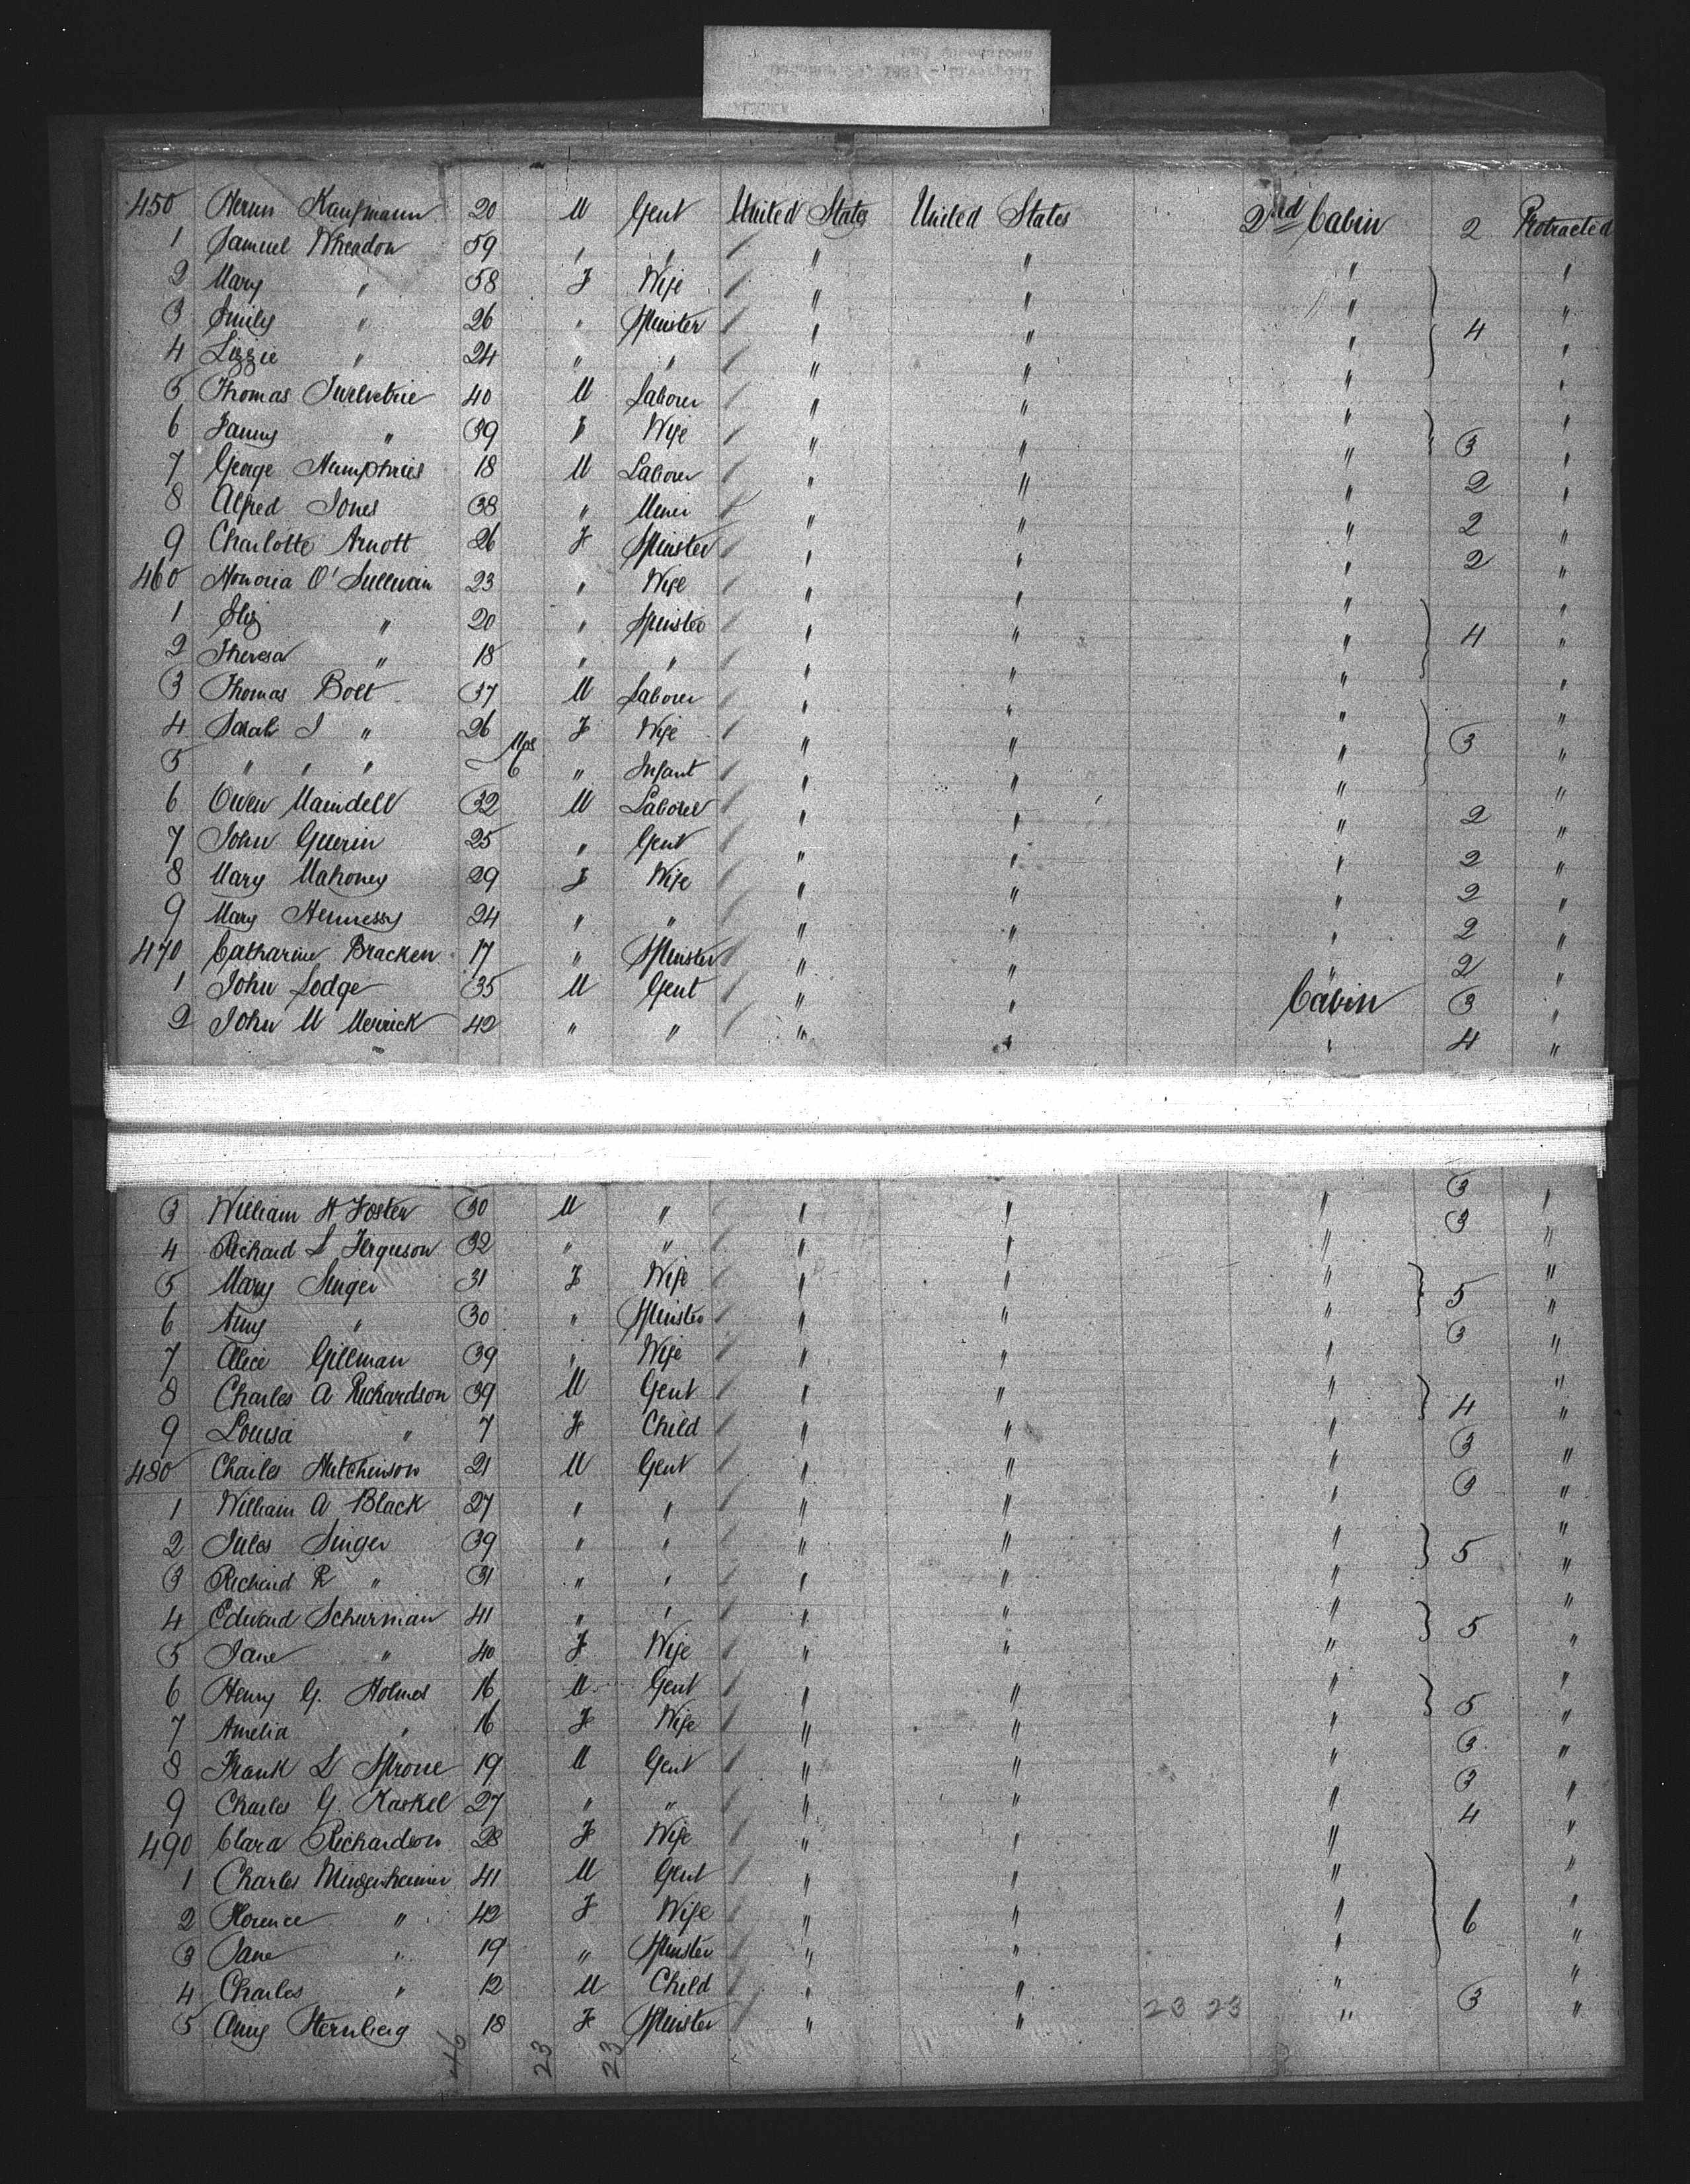 450 Herm Kaufmann 20 M Gent United States United States 2nd Cabin 2 Protracted
1 Samuel Wheadon 59 " " " " " "
2 Mary " 58 F Wife " " " "
3 Emily " 26 " Spinster " " " 4 "
4 Lizzie " 24 " " " " " "
5 Thomas 40 M Laborer " " " "
6 Fanny " 39 F Wife " " " 3 "
7 George Humphries 18 M Laborer " " " 2 "
8 Alfred Jones 38 " Miner " " " 2 "
9 Charlotte Arnott 26 F Spinster " " " 2 "
460 Honoria O'Sullivan 23 " Wife " " " "
1 Eliz " 20 " Spinster " " " 4 "
2 Theresa " 18 " " " " " "
3 Thomas Bolt 37 M Laborer " " " "
4 Sarah J " 26 F Wife " " " 3 "
5 " " " Mos 6 " Infant " " " "
6 Owen Maindell 32 M Laborer " " " 2 "
7 John Guerin 25 " Gent " " " 2 "
8 Mary Mahoney 29 F Wife " " " 2 "
9 Mary Hennessy 24 " " " " " 2 "
470 Catharine Bracken 17 " Spinster " " " 2 "
1 John Lodge 35 M Gent " " Cabin 3 "
2 John M Merrick 42 " " " " " 4 "
3 William H Foster 30 M " " " " 3 "
4 Richard L Ferguson 32 " " " " " 3 "
5 Mary Singer 31 F Wife " " " 5 "
6 Amy " 30 " Spinster " " " "
7 Alice Gillman 39 " Wife " " " 3 "
8 Charles A Richardson 39 M Gent " " " 4 "
9 Louisa " 7 F Child " " " "
480 Charles Hutchinson 21 M Gent " " " 3 "
1 William A Black 27 " " " " " 3 "
2 Jules Singer 39 " " " " " 5 "
3 Richard R " 31 " " " " " "
4 Edward Schurman 41 " " " " " 5 "
5 Jane " 40 F Wife " " " "
6 Henry G. Holmes 16 M Gent " " " 5 "
7 Amelia " 16 F Wife " " " "
8 Frank L Sproue 19 M Gent " " " 3 "
9 Charles G. Kaskel 27 " " " " " 3 "
490 Clara Richardson 28 F Wife " " " 4 "
1 Charles 41 M Gent " " " "
2 Florence " 42 F Wife " " " 6 "
3 Jane " 19 " Spinster " " " "
4 Charles " 12 M Child " " " "
5 Amy Sternberg 18 F Spinster " " 23 23 " 3 "
46 23 23